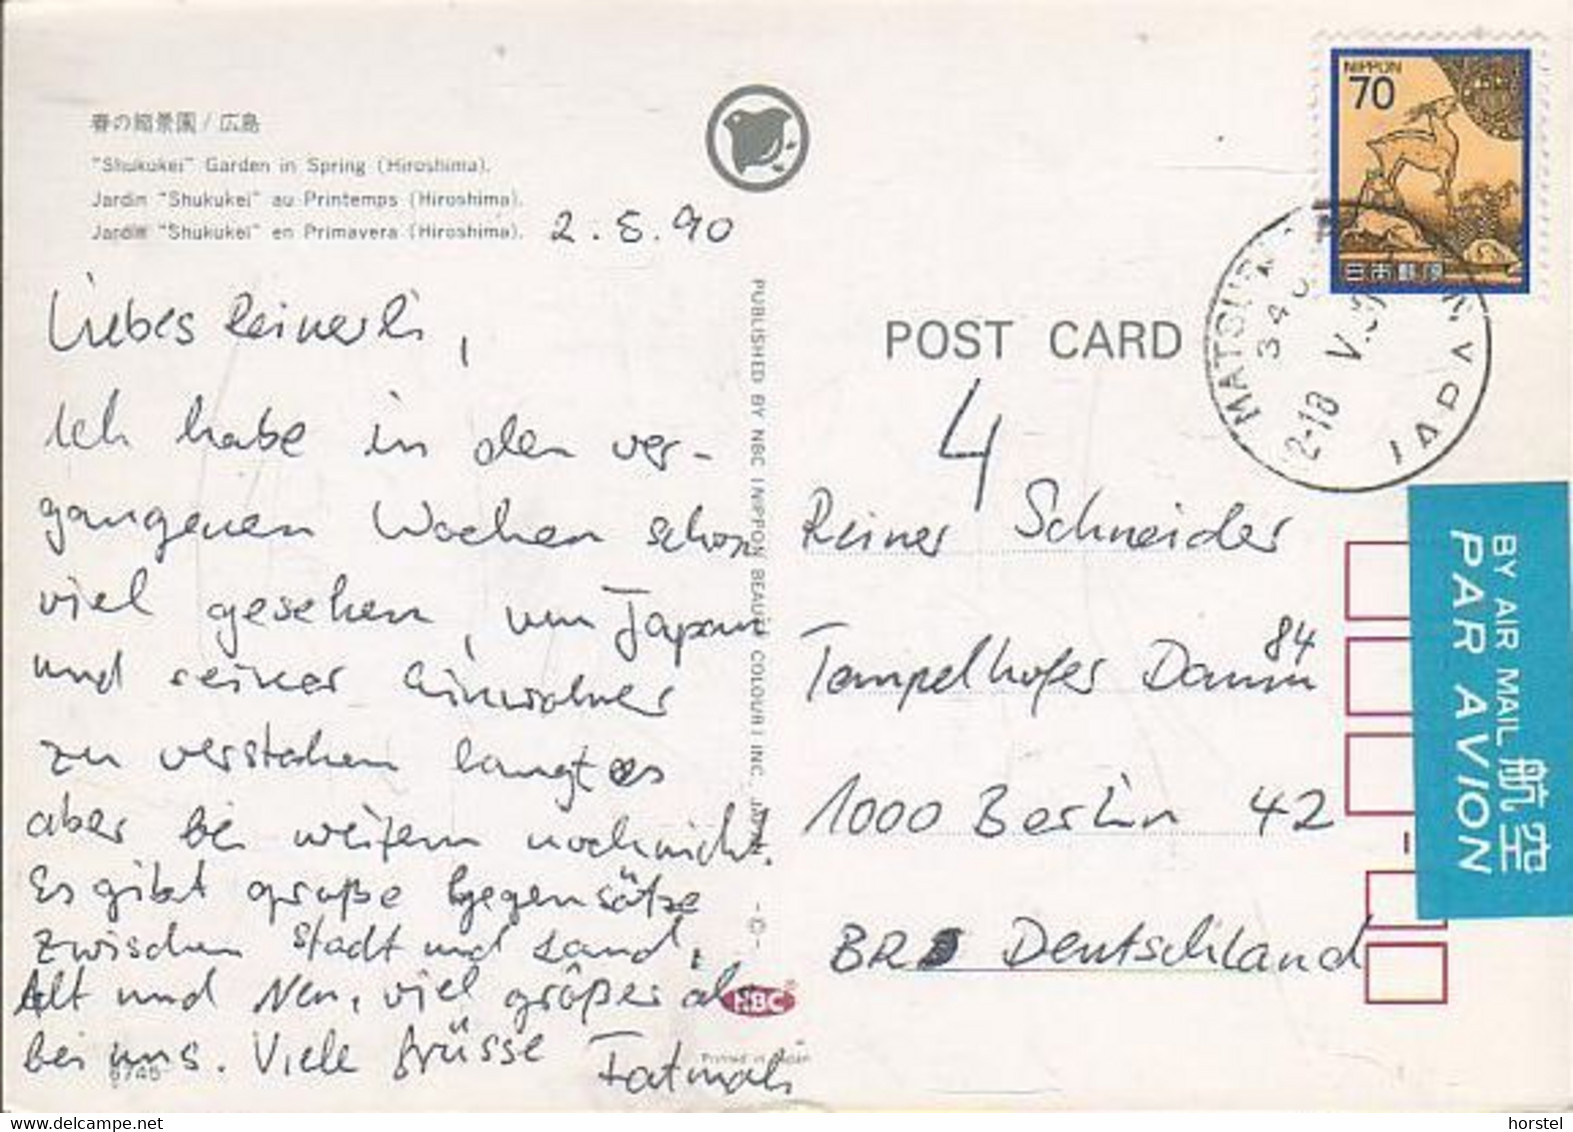 春の縮景園 / 広島
"Shukukei" Garden in Spring (Hiroshima).
Jardin "Shukukei" au Printemps (Hiroshima).
Jardin "Shukukei" en Primavera (Hiroshima).
2.5.90
Liebes Reinerli,
Ich habe in den ver-
gangenen Wochen schon
viel gesehen, um Japan
und seiner Einwohner
zu verstehen langt es
aber bei weitem noch nicht.
Es gibt große Gegensätze
zwischen Stadt und Land,
Alt und Neu, viel größer als
bei uns. Viele Grüsse Fatmah
6745
PUBLISHED BY NBC (NIPPON BEAUTY COLOUR) INC. JAPAN -C-
NBC
Printed in Japan
NIPPON
70
日本郵便
MATSU
JAPAN
POST CARD
4
Reiner Schneider
Tempelhofer Damm 84
1000 Berlin 42
BR Deutschland
BY AIR MAIL 航空
PAR AVION
horstel